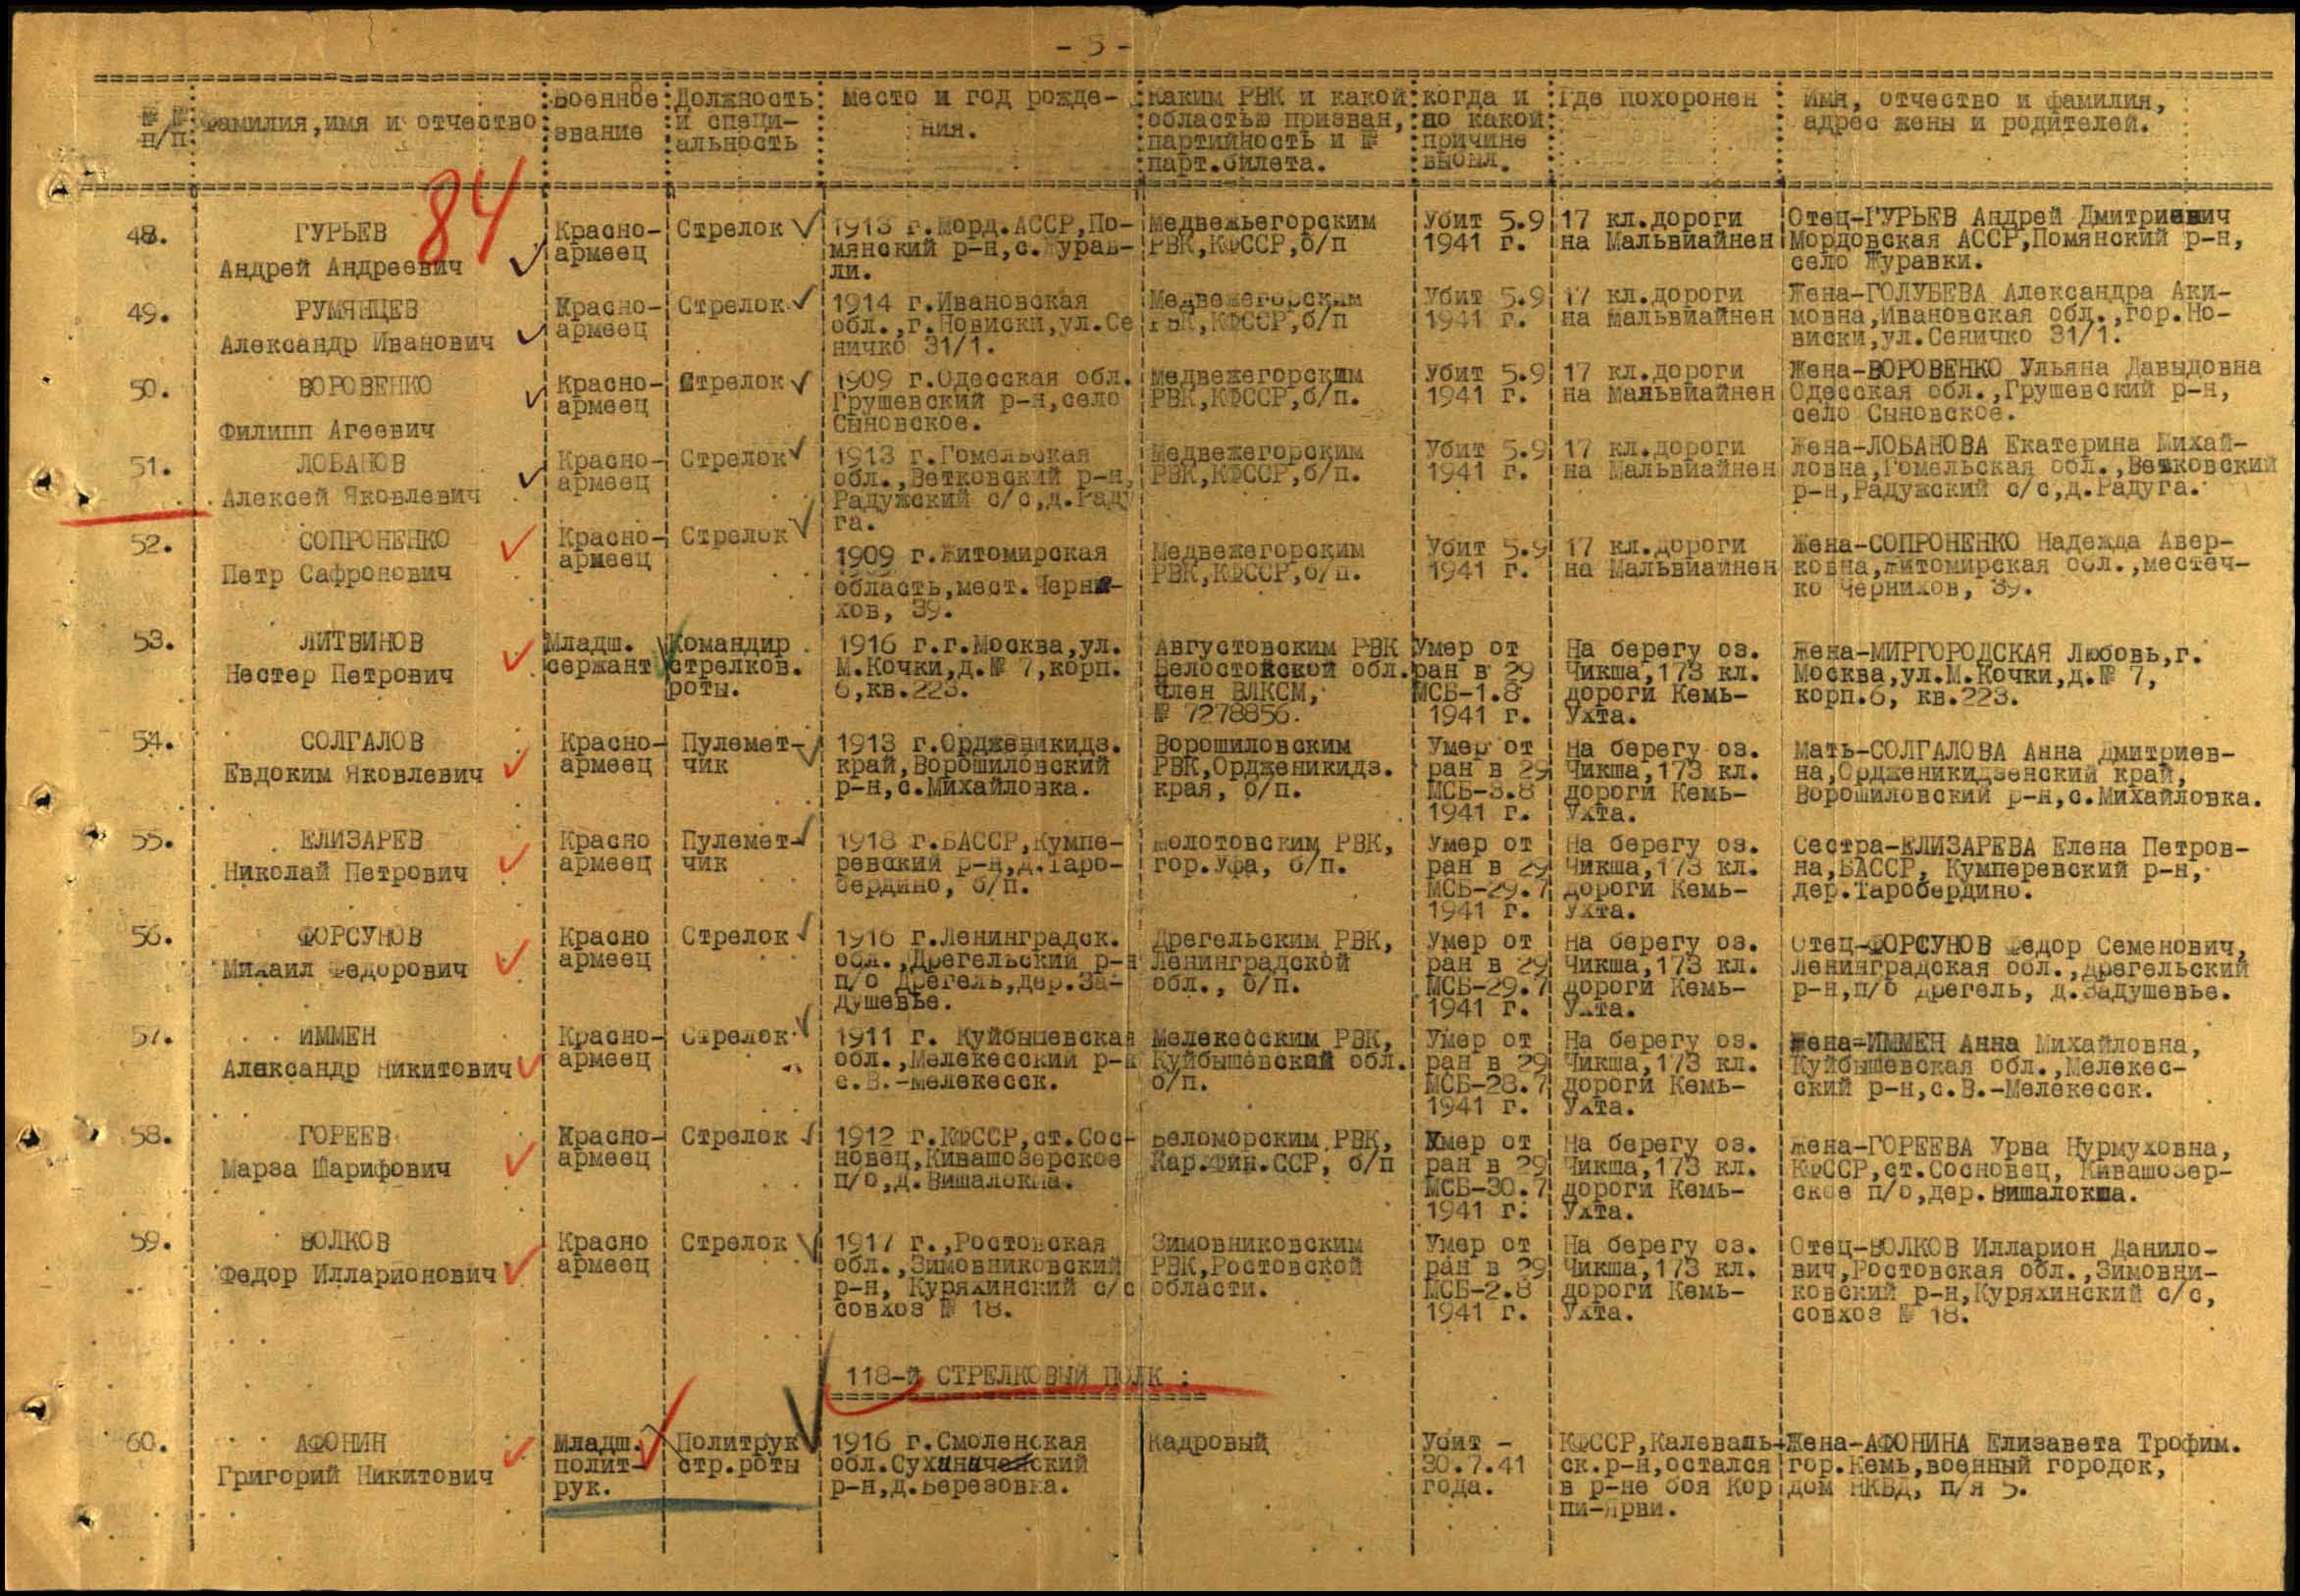 - 5 -
№ №
п/п
Фамилия, имя и отчество
Военное
звание
Должность
и специ-
альность
Место и год рожде-
ния.
Каким РВК и какой
областью призван,
партийность и №
парт.билета.
Когда и
по какой
причине
выбыл.
Где похоронен
Имя, отчество и фамилия,
адрес жены и родителей.
84
48.
ГУРЬЕВ
Андрей Андреевич
Красно-
армеец
Стрелок
1913 г.Морд.АССР,По-
мянский р-н,с.Журав-
ли.
Медвежьегорским
РВК,КФССР,б/п
Убит 5.9
1941 г.
17 кл.дороги
на Мальвиайнен
Отец-ГУРЬЕВ Андрей Дмитриевич
Мордовская АССР,Помянский р-н,
село Журавки.
49.
РУМЯНЦЕВ
Александр Иванович
Красно-
армеец
Стрелок
1914 г.Ивановская
обл.,г.Новиски,ул.Се
ничко 31/1.
Медвежегорским
РВК,КФССР,б/п
Убит 5.9
1941 г.
17 кл.дороги
на Мальвиайнен
Жена-ГОЛУБЕВА Александра Аки-
мовна,Ивановская обл.,гор.Но-
виски,ул.Сеничко 31/1.
50.
ВОРОВЕНКО
Филипп Агеевич
Красно-
армеец
Стрелок
1909 г.Одесская обл.
Грушевский р-н,село
Сыновское.
Медвежегорским
РВК,КФССР,б/п.
Убит 5.9
1941 г.
17 кл.дороги
на Мальвиайнен
Жена-ВОРОВЕНКО Ульяна Давыдовна
Одесская обл.,Грушевский р-н,
село Сыновское.
51.
ЛОБАНОВ
Алексей Яковлевич
Красно-
армеец
Стрелок
1913 г.Гомельская
обл.,Ветковский р-н,
Радужский с/с,д.Раду
га.
Медвежегорским
РВК,КФССР,б/п.
Убит 5.9
1941 г.
17 кл.дороги
на Мальвиайнен
Жена-ЛОБАНОВА Екатерина Михай-
ловна,Гомельская обл.,Ветковский
р-н,Радужский с/с,д.Радуга.
52.
СОПРОНЕНКО
Петр Сафронович
Красно-
армеец
Стрелок
1909 г.Житомирская
область,мест.Черни-
хов, 39.
Медвежегорским
РВК,КФССР,б/п.
Убит 5.9
1941 г.
17 кл.дороги
на Мальвиайнен
Жена-СОПРОНЕНКО Надежда Авер-
ковна,Житомирская обл.,местеч-
ко Чернихов, 39.
53.
ЛИТВИНОВ
Нестер Петрович
Младш.
сержант
Командир
стрелков.
роты.
1916 г.г.Москва,ул.
М.Кочки,д.№ 7,корп.
6,кв.223.
Августовским РВК
Белостокской обл.
член ВЛКСМ,
№ 7278856.
Умер от
ран в 29
МСБ-1.8
1941 г.
На берегу оз.
Чикша,173 кл.
дороги Кемь-
Ухта.
Жена-МИРГОРОДСКАЯ Любовь,г.
Москва,ул.М.Кочки,д.№ 7,
корп.6, кв.223.
54.
СОЛГАЛОВ
Евдоким Яковлевич
Красно-
армеец
Пулемет-
чик
1913 г.Ордженикидз.
край,Ворошиловский
р-н,с.Михайловка.
Ворошиловским
РВК,Ордженикидз.
края, б/п.
Умер от
ран в 29
МСБ-3.8
1941 г.
На берегу оз.
Чикша,173 кл.
дороги Кемь-
Ухта.
Мать-СОЛГАЛОВА Анна Дмитриев-
на,Ордженикидзенский край,
Ворошиловский р-н,с.Михайловка.
55.
ЕЛИЗАРЕВ
Николай Петрович
Красно
армеец
Пулемет-
чик
1918 г.БАССР,Кумпе-
ревский р-н,д.Таро-
бердино, б/п.
Молотовским РВК,
гор.Уфа, б/п.
Умер от
ран в 29
МСБ-29.7
1941 г.
На берегу оз.
Чикша,173 кл.
дороги Кемь-
Ухта.
Сестра-ЕЛИЗАРЕВА Елена Петров-
на,БАССР, Кумперевский р-н,
дер.Таробердино.
56.
ФОРСУНОВ
Михаил Федорович
Красно
армеец
Стрелок
1916 г.Ленинградск.
обл.,Дрегельский р-н
п/о Дрегель,дер.За-
душевье.
Дрегельским РВК,
Ленинградской
обл., б/п.
Умер от
ран в 29
МСБ-29.7
1941 г.
На берегу оз.
Чикша,173 кл.
дороги Кемь-
Ухта.
Отец-ФОРСУНОВ Федор Семенович,
Ленинградская обл.,Дрегельский
р-н,п/о Дрегель, д.Задушевье.
57.
ИММЕН
Александр Никитович
Красно-
армеец
Стрелок
1911 г. Куйбышевская
обл.,Мелекесский р-н
с.В.-Мелекесск.
Мелекесским РВК,
Куйбышевский обл.
б/п.
Умер от
ран в 29
МСБ-28.7
1941 г.
На берегу оз.
Чикша,173 кл.
дороги Кемь-
Ухта.
Жена-ИММЕН Анна Михайловна,
Куйбышевская обл.,Мелекес-
ский р-н,с.В.-Мелекесск.
58.
ГОРЕЕВ
Марза Шарифович
Красно-
армеец
Стрелок
1912 г.КФССР,ст.Сос-
новец,Кивашозерское
п/о,д.Вишалокша.
Беломорским РВК,
Кар.Фин.ССР, б/п
Умер от
ран в 29
МСБ-30.7
1941 г.
На берегу оз.
Чикша,173 кл.
дороги Кемь-
Ухта.
Жена-ГОРЕЕВА Урва Нурмуховна,
КФССР,ст.Сосновец, Кивашозер-
ское п/о,дер.Вишалокша.
59.
ВОЛКОВ
Федор Илларионович
Красно
армеец
Стрелок
1917 г.,Ростовская
обл.,Зимовниковский
р-н, Куряхинский с/с
совхоз № 18.
Зимовниковским
РВК,Ростовской
области.
Умер от
ран в 29
МСБ-2.8
1941 г.
На берегу оз.
Чикша,173 кл.
дороги Кемь-
Ухта.
Отец-ВОЛКОВ Илларион Данило-
вич,Ростовская обл.,Зимовни-
ковский р-н,Куряхинский с/с,
совхоз № 18.
118-й СТРЕЛКОВЫЙ ПОЛК :
60.
АФОНИН
Григорий Никитович
Младш.
полит-
рук.
Политрук
стр.роты
1916 г.Смоленская
обл.Сухиниченский
р-н,д.Березовка.
Кадровый
Убит -
30.7.41
года.
КФССР,Калеваль-
ск.р-н,остался
в р-не боя Кор
пи-Ярви.
Жена-АФОНИНА Елизавета Трофим.
гор.Кемь,военный городок,
дом НКВД, п/я 5.